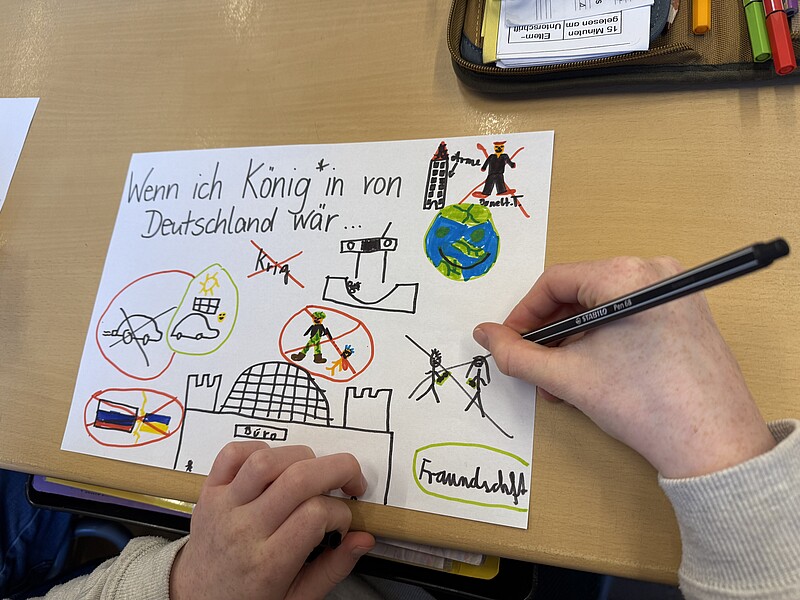 Wenn ich König*in von
Deutschland wär...
Arme
Donelt.T.
Krig
Büro
Fraundschft
STABILO Pen 68
15 Minuten
gelesen am
Eltern-
Unterschrift